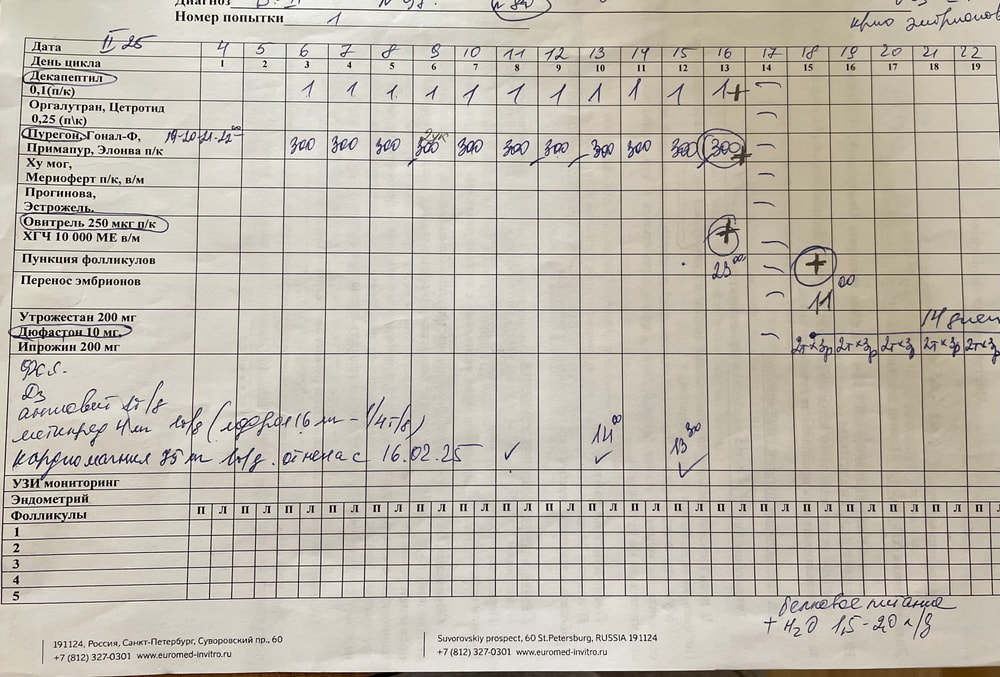 Диагноз
Номер попытки 1
крио эмбрионов
Дата II 25 4 5 6 7 8 9 10 11 12 13 14 15 16 17 18 19 20 21 22
День цикла 1 2 3 4 5 6 7 8 9 10 11 12 13 14 15 16 17 18 19
Декапептил
0,1(п/к) 1 1 1 1 1 1 1 1 1 1 1+ –
Оргалутран, Цетротид
0,25 (п\к) –
Пурегон, Гонал-Ф, 19-20-21-22 00
Примапур, Элонва п/к 300 300 300 300 300 300 300 300 300 300 300 + –
Ху мог,
Мериоферт п/к, в/м –
Прогинова,
Эстрожель. –
Овитрель 250 мкг п/к +
ХГЧ 10 000 МЕ в/м –
Пункция фолликулов 23 00 – +
Перенос эмбрионов – 11 00
Утрожестан 200 мг 14 дней
Дюфастон 10 мг. –
Ипрожин 200 мг 2т×3р 2т×3р 2т×3р 2т×3р 2т×3р
метипред 4 мг
кардиомагнил 75 мг 1т/д. отмена с 16.02.25 ✓ 14 00 ✓ 13 30 ✓
УЗИ мониторинг
Эндометрий
Фолликулы П Л П Л П Л П Л П Л П Л П Л П Л П Л П Л П Л П Л П Л П Л П Л П Л П Л П Л П Л
1
2
3
4
5
белковое питание
+ H2O 1,5-2,0 л/д
191124, Россия, Санкт-Петербург, Суворовский пр., 60
+7 (812) 327-0301 www.euromed-invitro.ru
Suvorovskiy prospect, 60 St.Petersburg, RUSSIA 191124
+7 (812) 327-0301 www.euromed-invitro.ru